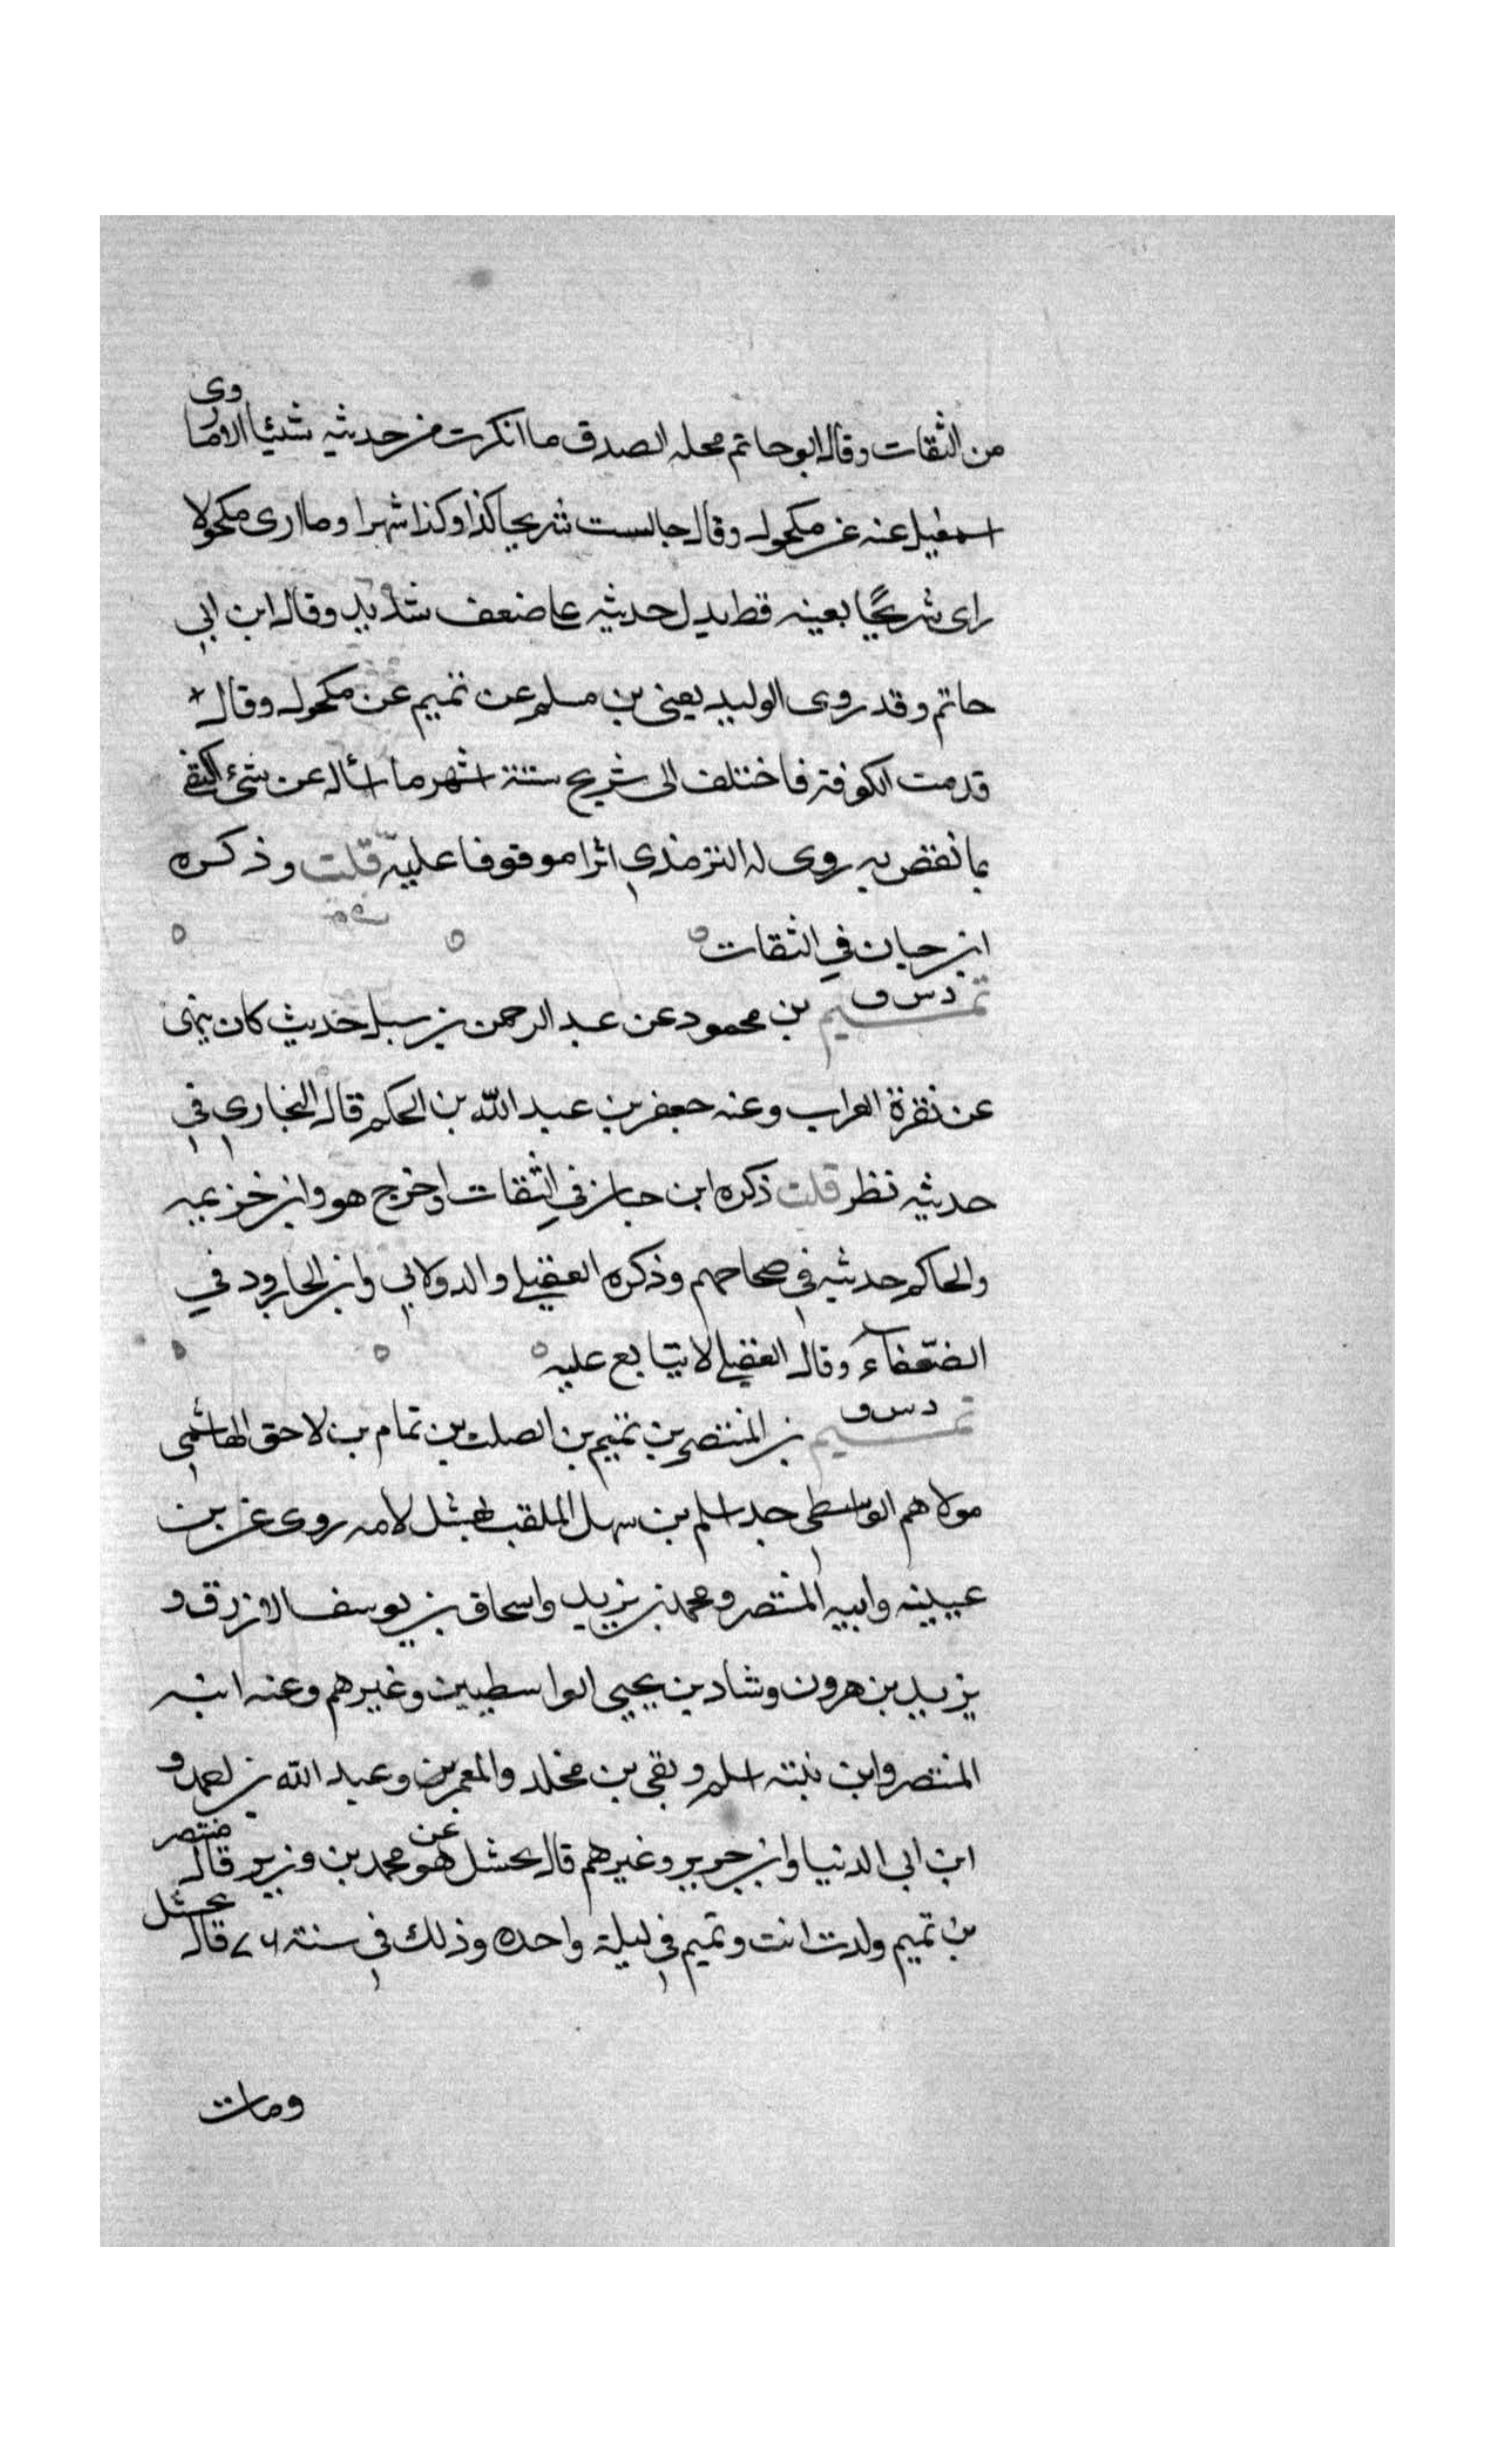 من الثقات وقال ابو حاتم محله الصدق ما انكرت من حديثه شيئا الا ما روى
اسمعيل عنه عن مكحول وقال جالست شريحا كذا وكذا شهرا وما ارى مكحولا
راى شريحا بعينه قط يدل حديثه على ضعف شديد وقال ابن ابي
حاتم وقد روى الوليد يعنى بن مسلم عن تميم عن مكحول وقال
قدمت الكوفة فاختلف الى شريح ستة اشهر ما اساله عن شئ اكتفى
بما نقض به روى له الترمذي اثرا موقوفا عليه قلت وذكره
ابن حبان في الثقات
د س ق
تميم بن محمود عن عبد الرحمن بن سبل حديث كان ينهى
عن نقرة الغراب وعنه جعفر بن عبد الله بن الحكم قال البخاري في
حديثه نظر قلت ذكره ابن حبان في الثقات اوخرج هو وابن خزيمه
والحاكم حديثه في صحاحهم وذكره العقيلي والدولابي وابن الجارود في
الضعفاء وقال العقيلي لا يتابع عليه
د س ق
تميم بن المنتصر بن تميم بن الصلت بن تمام بن لاحق الهاشمي
مولاهم الواسطي جد اسلم بن سهل الملقب بحشل لامه روى عن بن
عيينه وابيه المنتصر ومحمد بن يزيد واسحاق بن يوسف الازرق و
يزيد بن هرون وشاد بن يحيى الواسطيين وغيرهم وعنه ابنه
المنتصر وابن بنته اسلم وبقى بن مخلد والمعمرين وعبد الله بن احمد و
ابن ابي الدنيا وابن جرير وغيرهم قال بحشل عن هو محمد بن وزير قال منتصر
بن تميم ولدت انت وتميم في ليلة واحده وذلك في سنة ٧٦ قال بحشل
ومات